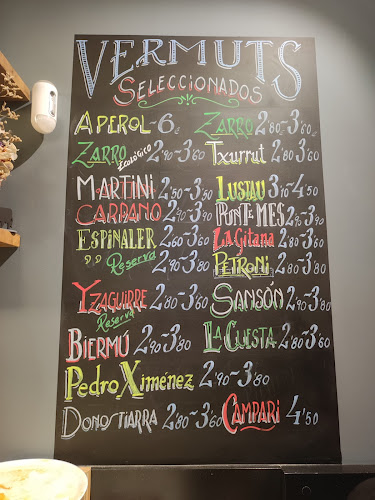 VERMUTS
SELECCIONADOS
APEROL-6€ ZARRO 2'80-3'60€
ZARRO Ecológico 2'90-3'60 TXURRUT 2'80 3'60
MARTINI 2'50-3'50 LUSTAU 3'10-4'50
CARPANO 2'90-3'90 PUNT E MES 2'90-3'90
ESPINALER 2'60-3'60 LA GITANA 2'80-3'60
" " Reserva 2'90-3'80 PETRONI 2'80-3'80
YZAGUIRRE Reserva 2'80-3'60 SANSÓN 2'80-3'60
BIERMÚ 2'90-3'80 LA CUESTA 2'80-3'60
PEDRO XIMÉNEZ 2'90-3'80
DONOSTIARRA 2'80-3'60 CAMPARI 4'50